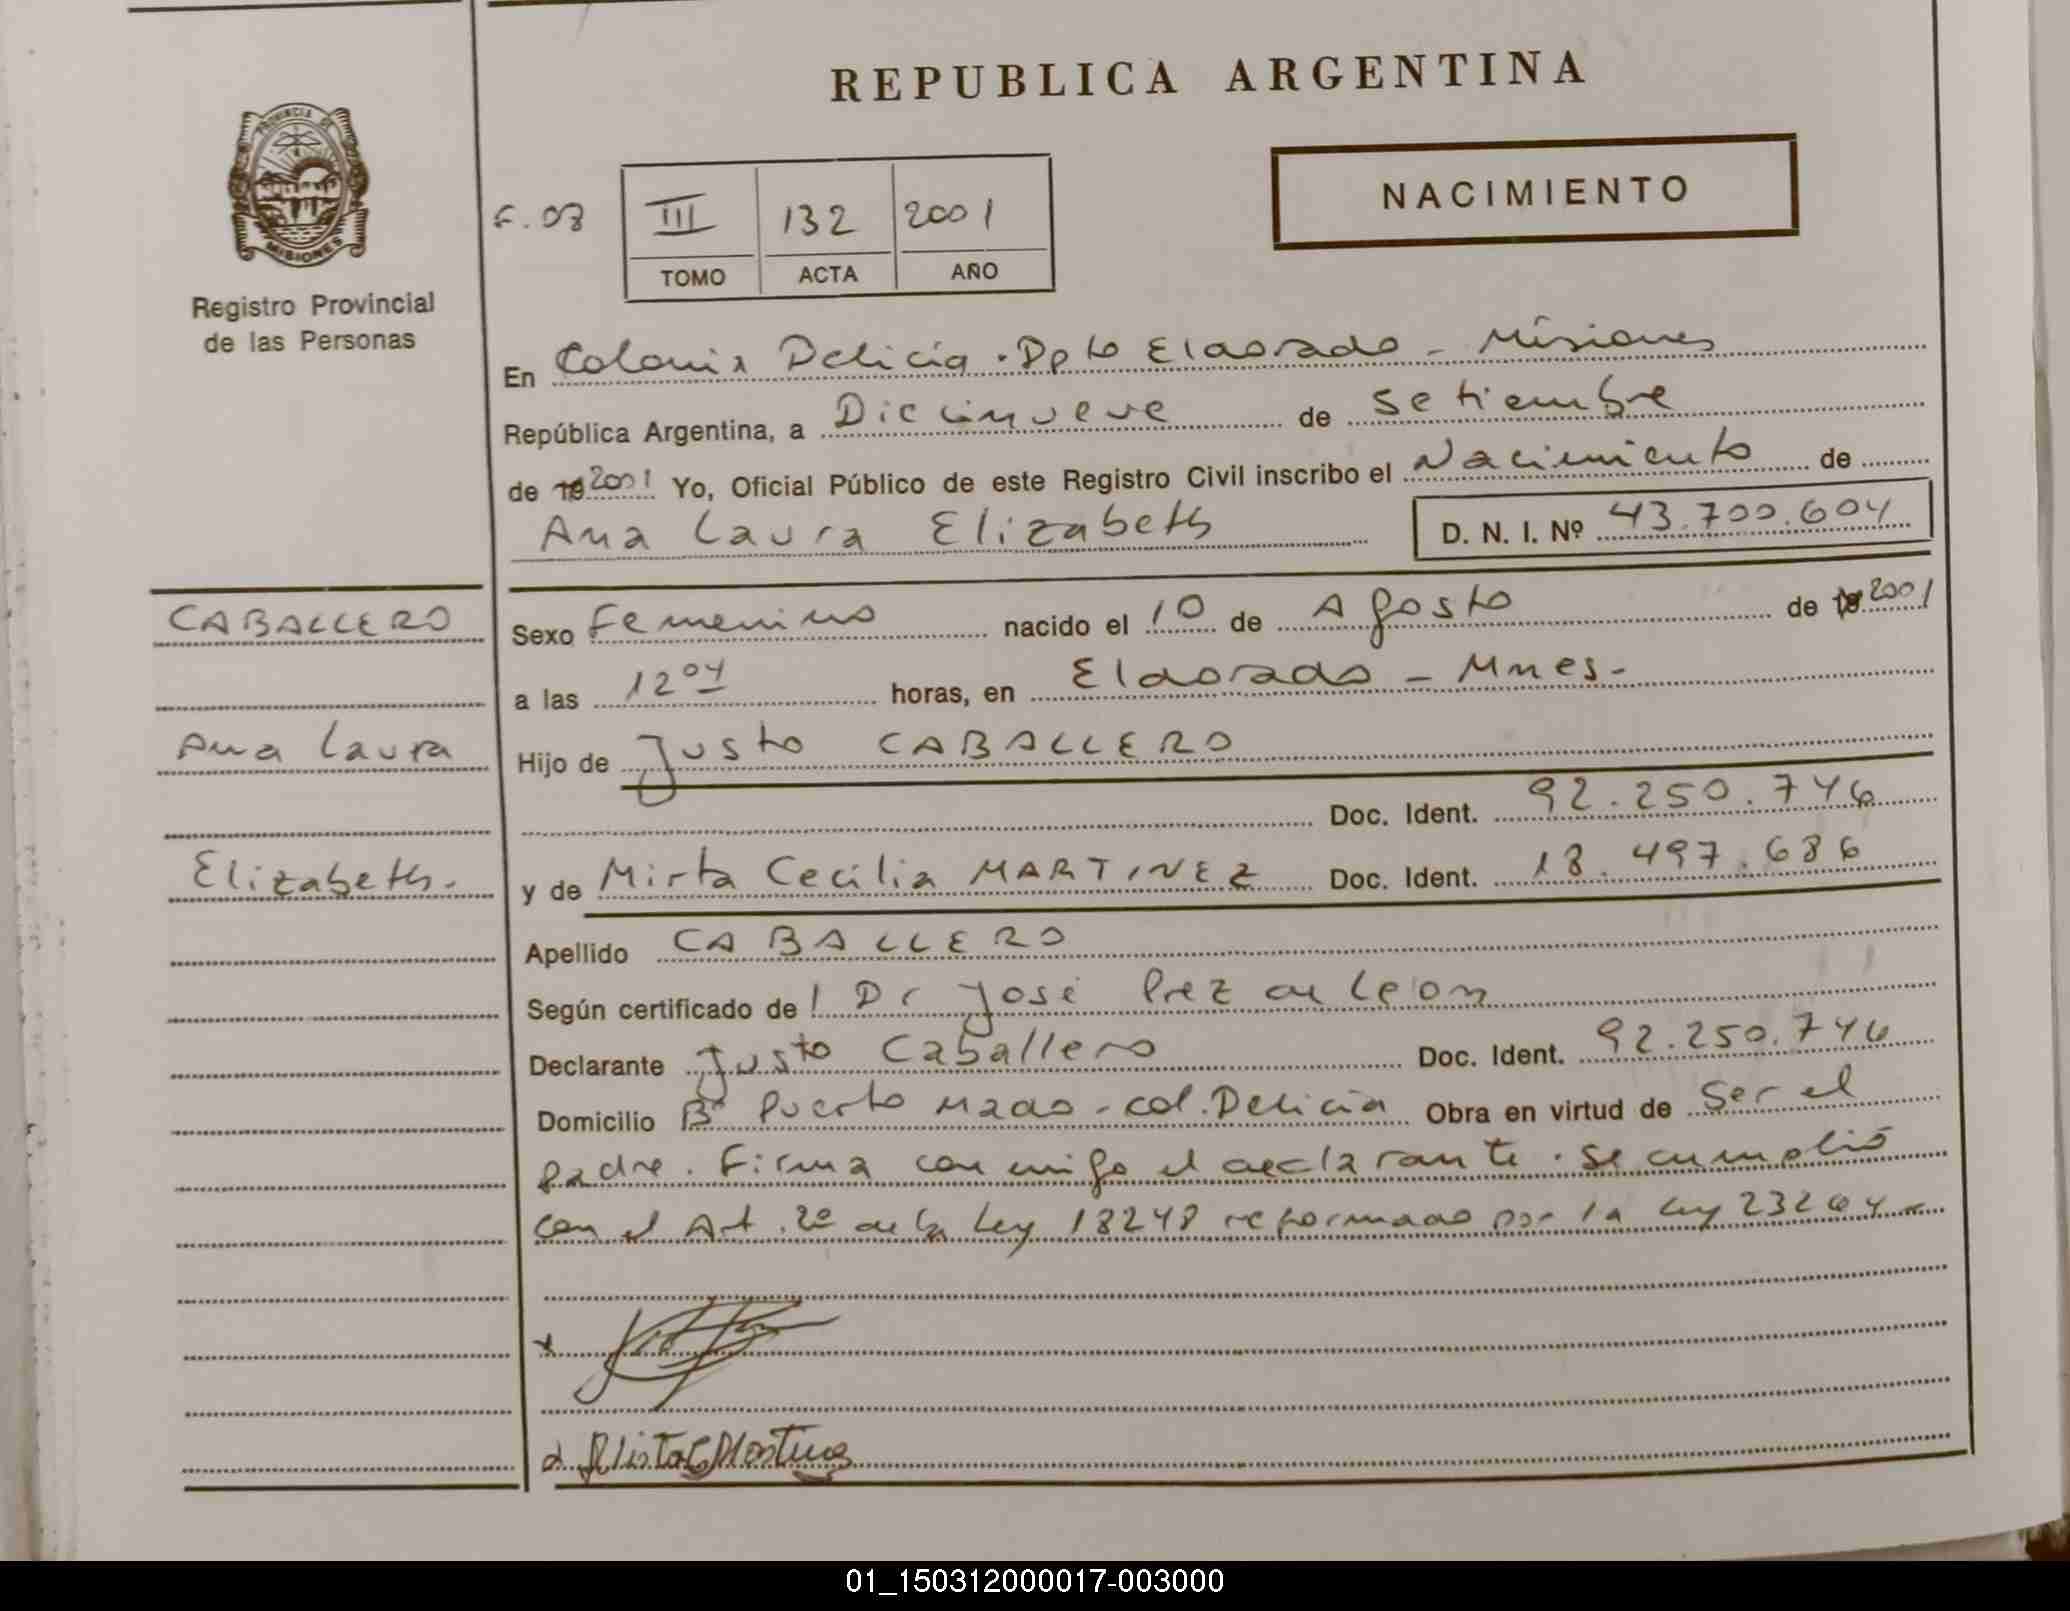 REPUBLICA ARGENTINA
NACIMIENTO
PROVINCIA DE
MISIONES
Registro Provincial
de las Personas
F. 08
III 132 2001
TOMO ACTA AÑO
En Colonia Delicia. Dpto Eldorado - Misiones
República Argentina, a Diecinueve de Setiembre
de 19 2001 Yo, Oficial Público de este Registro Civil inscribo el Nacimiento de
Ana Laura Elizabeth D. N. I. Nº 43.700.604
CABALLERO
Ana Laura
Elizabeth.
Sexo Femenino nacido el 10 de Agosto de 19 2001
a las 12 04 horas, en Eldorado - Mnes-
Hijo de Justo CABALLERO
Doc. Ident. 92.250.746
y de Mirta Cecilia MARTINEZ Doc. Ident. 18.497.686
Apellido CABALLERO
Según certificado de Dr José Prez de Leon
Declarante Justo Caballero Doc. Ident. 92.250.746
Domicilio Bº Puerto Mado - Col. Delicia Obra en virtud de Ser el
padre. Firma conmigo el declarante. Se cumplió
con el Art. 2º de la Ley 18248 reformado por la Ley 23264
01_150312000017-003000